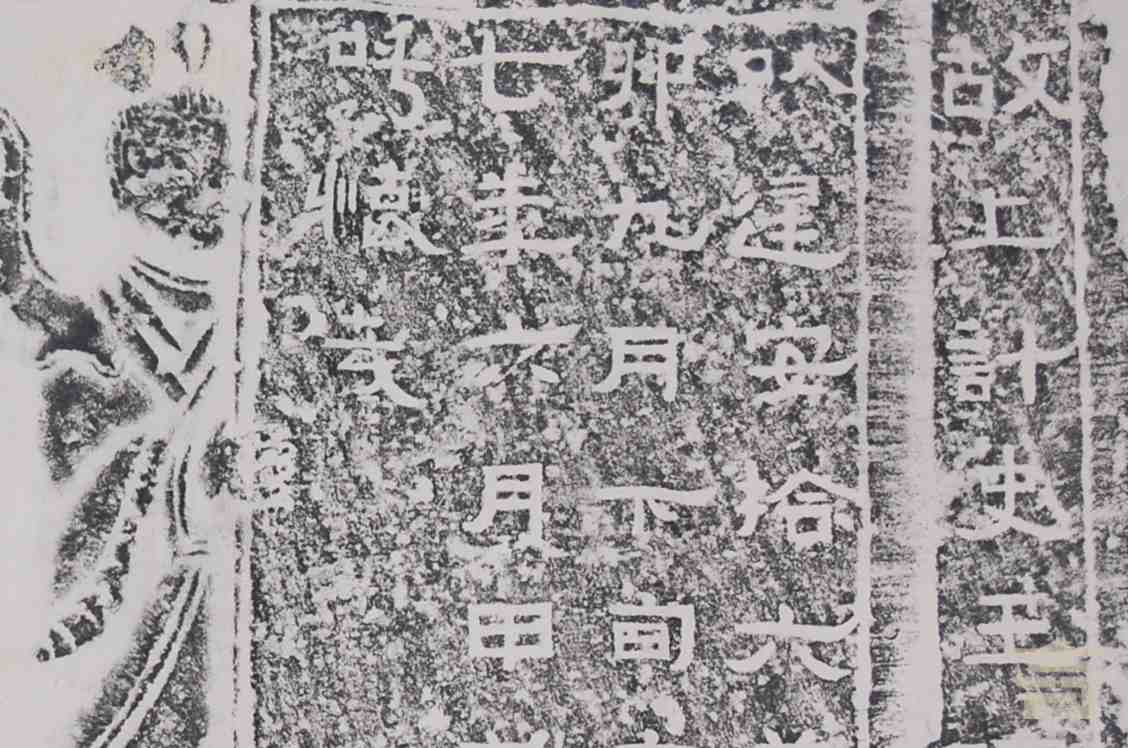 故上計史王
以建安拾六
卯九月下旬
七年六月甲
呼